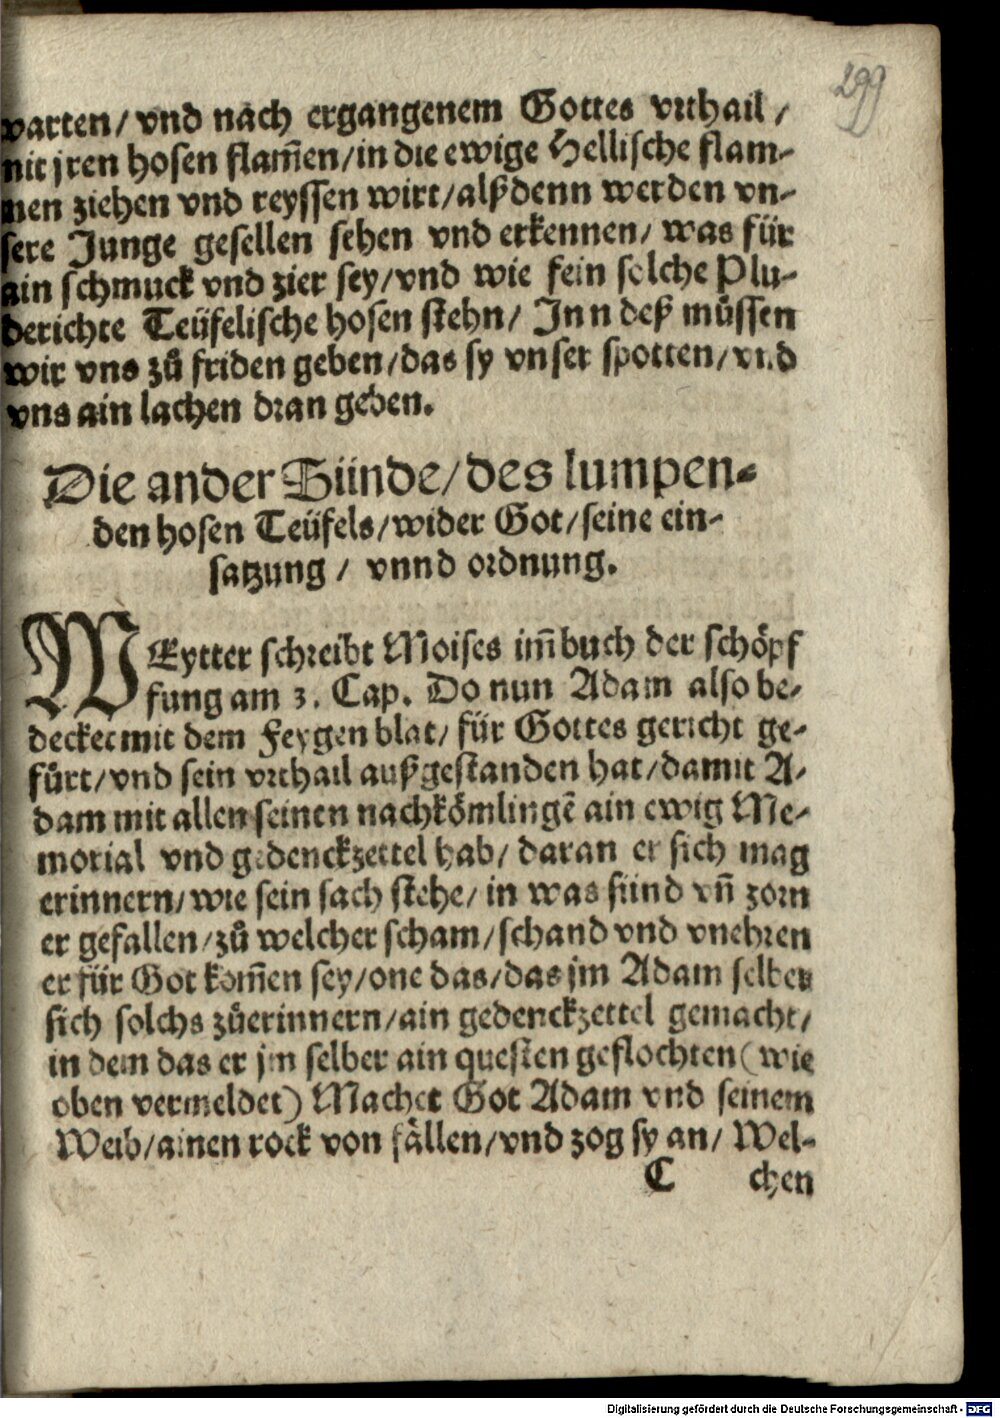 299
warten/ vnd nach ergangenem Gottes vrthail /
mit jren hosen flam̃en/ in die ewige Hellische flam-
men ziehen vnd reyssen wirt/ alßdenn werden vn-
sere Junge gesellen sehen vnd erkennen/ was für
ain schmuck vnd zier sey/ vnd wie fein solche Plu-
derichte Teüfelische hosen stehn/ Inn deß müssen
wir vns zů friden geben/ das sy vnser spotten/ vnd
vns ain lachen dran geben.
Die ander Sünde/ des lumpen-
den hosen Teüfels/ wider Got/ seine ein-
satzung / vnnd ordnung.
WEytter schreibt Moises im̃ buch der schöpf
fung am 3. Cap. Do nun Adam also be-
decket mit dem Feygen blat/ für Gottes gericht ge-
fürt/ vnd sein vrthail außgestanden hat/ damit A-
dam mit allen seinen nachkömlingẽ ain ewig Me-
morial vnd gedenckzettel hab/ daran er sich mag
erinnern/ wie sein sach stehe/ in was sünd vñ zorn
er gefallen/ zů welcher scham/ schand vnd vnehren
er für Got kom̃en sey/ one das/ das jm Adam selber
sich solchs zůerinnern/ ain gedenckzettel gemacht/
in dem das er jm selber ain questen geflochten (wie
oben vermeldet) Machet Got Adam vnd seinem
Weib/ ainen rock von fällen/ vnd zog sy an/ Wel-
C chen
Digitalisierung gefördert durch die Deutsche Forschungsgemeinschaft - DFG